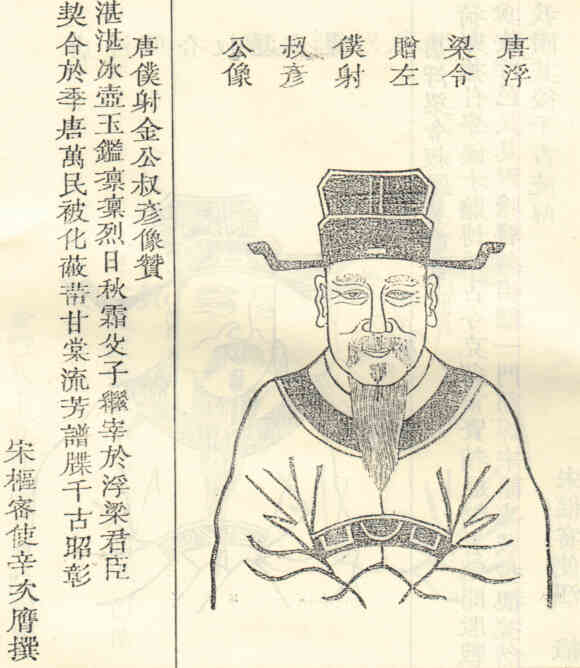 唐浮
梁令
贈左
僕射
叔彦
公像
唐僕射金公叔彦像贊
湛湛冰壺玉鑑凛凛烈日秋霜父子繼宰於浮梁君臣
契合於季唐萬民被化蔽芾甘棠流芳譜牒千古昭彰
宋樞密使辛次膺撰